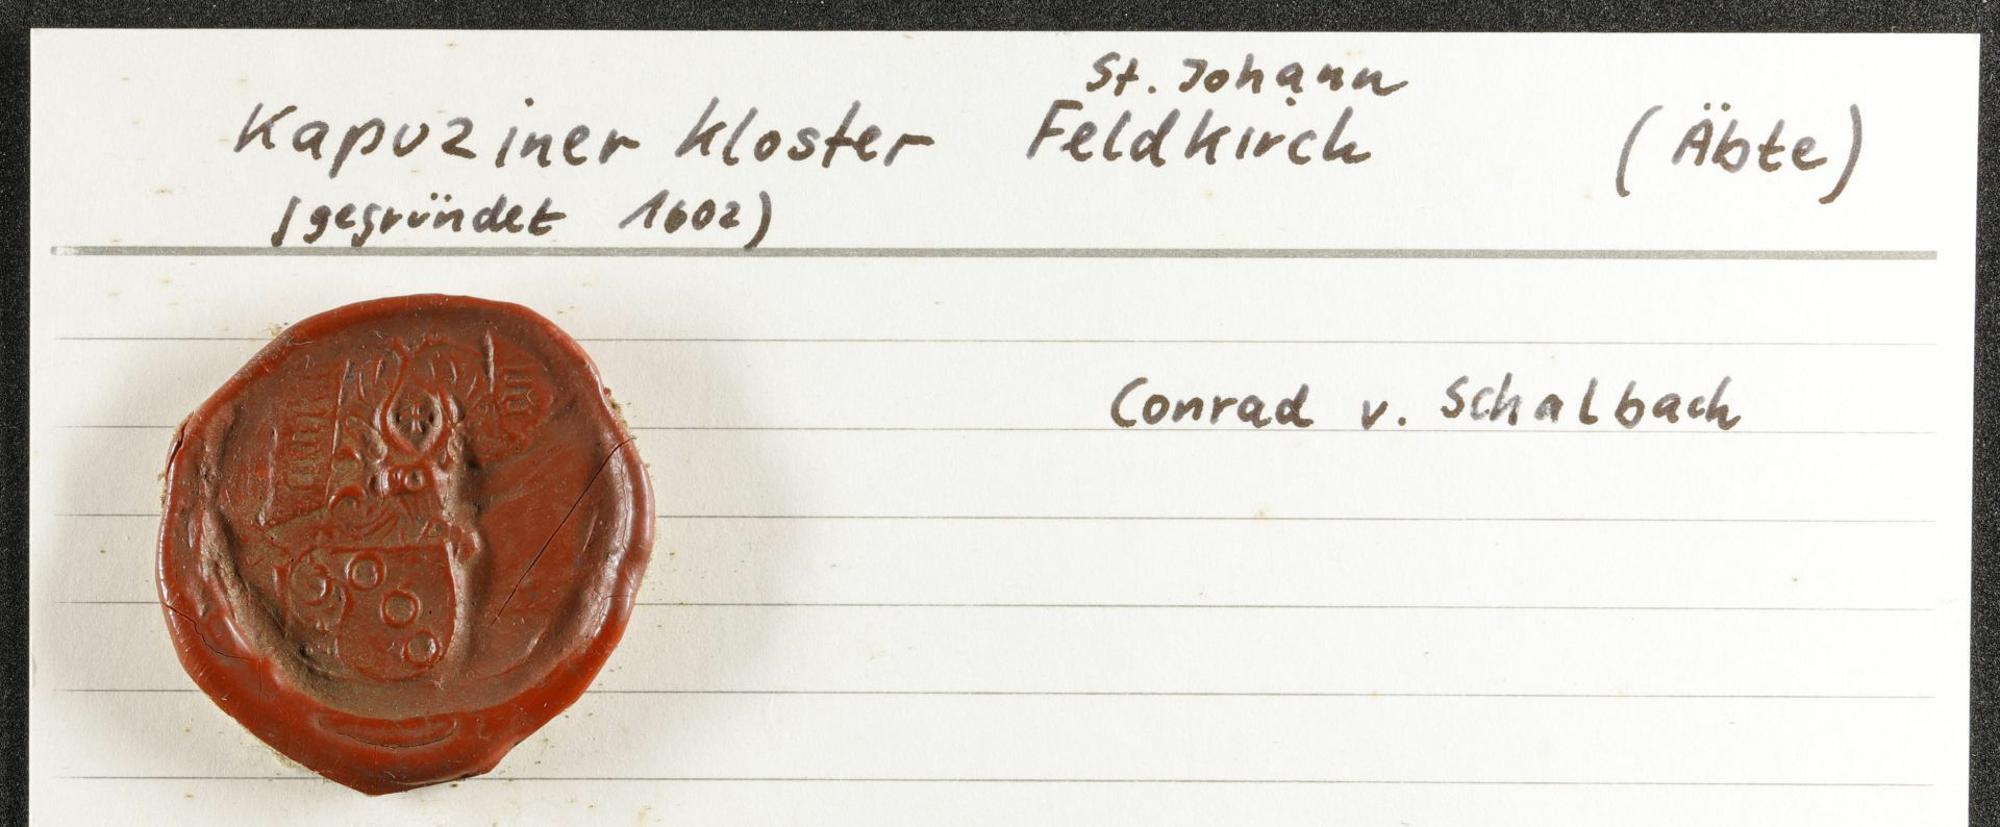 St. Johann
Kapuziner kloster Feldkirch (Äbte)
(gegründet 1602)
Conrad v. Schalbach